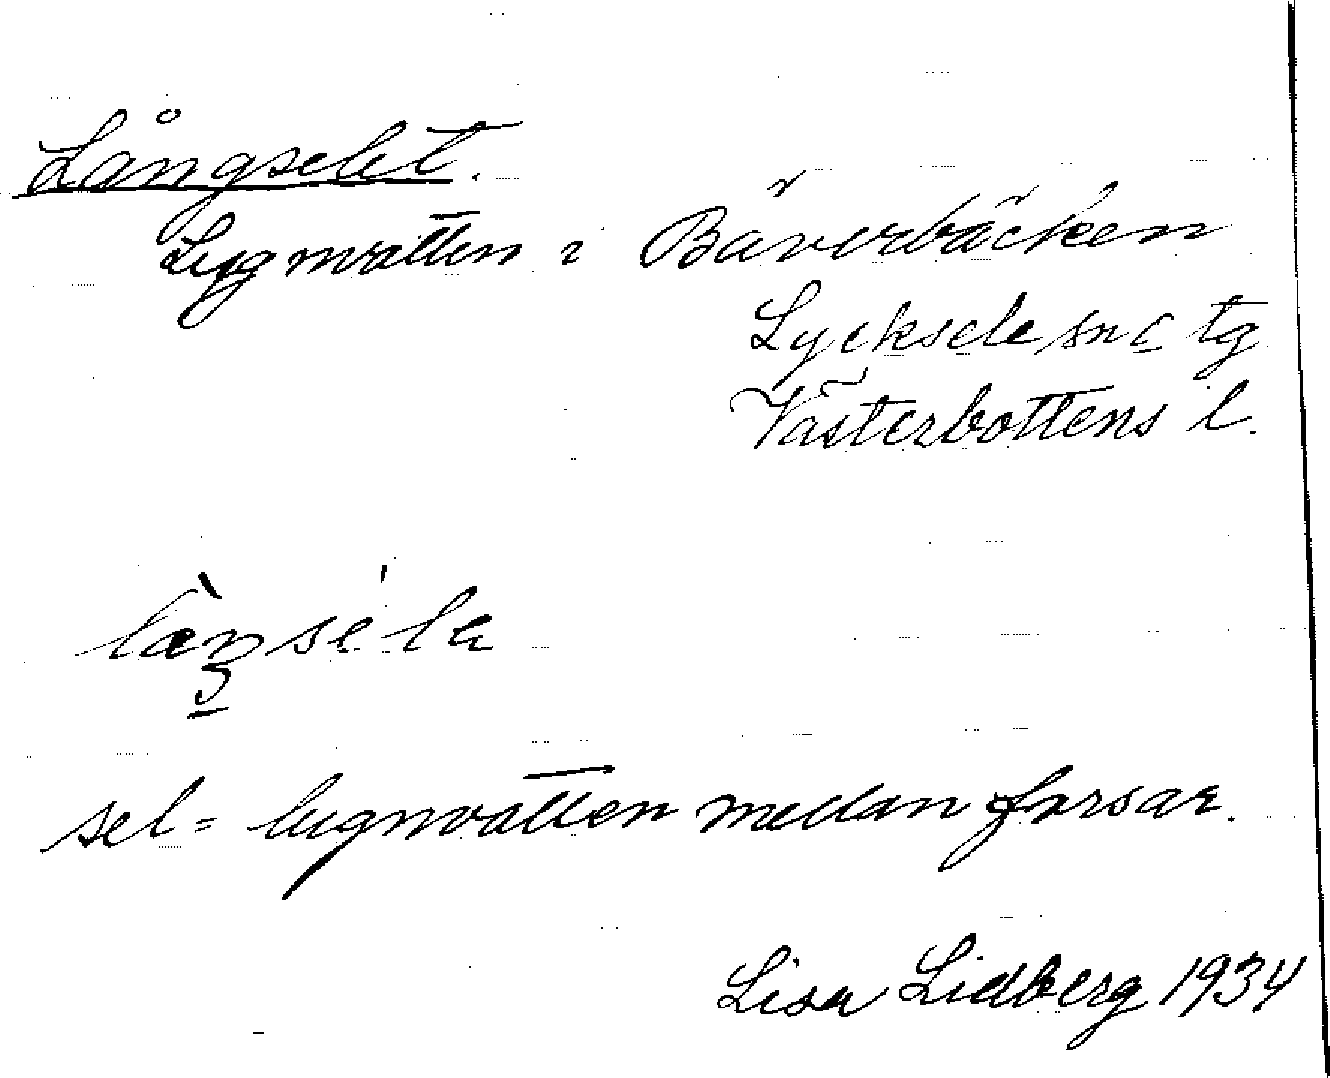 Långselet.
Lugnvatten i Bäverbäcken
Lycksele sn o tg
Västerbottens l.
sel = lugnvatten mellan forsar.
Lisa Lidberg 1934